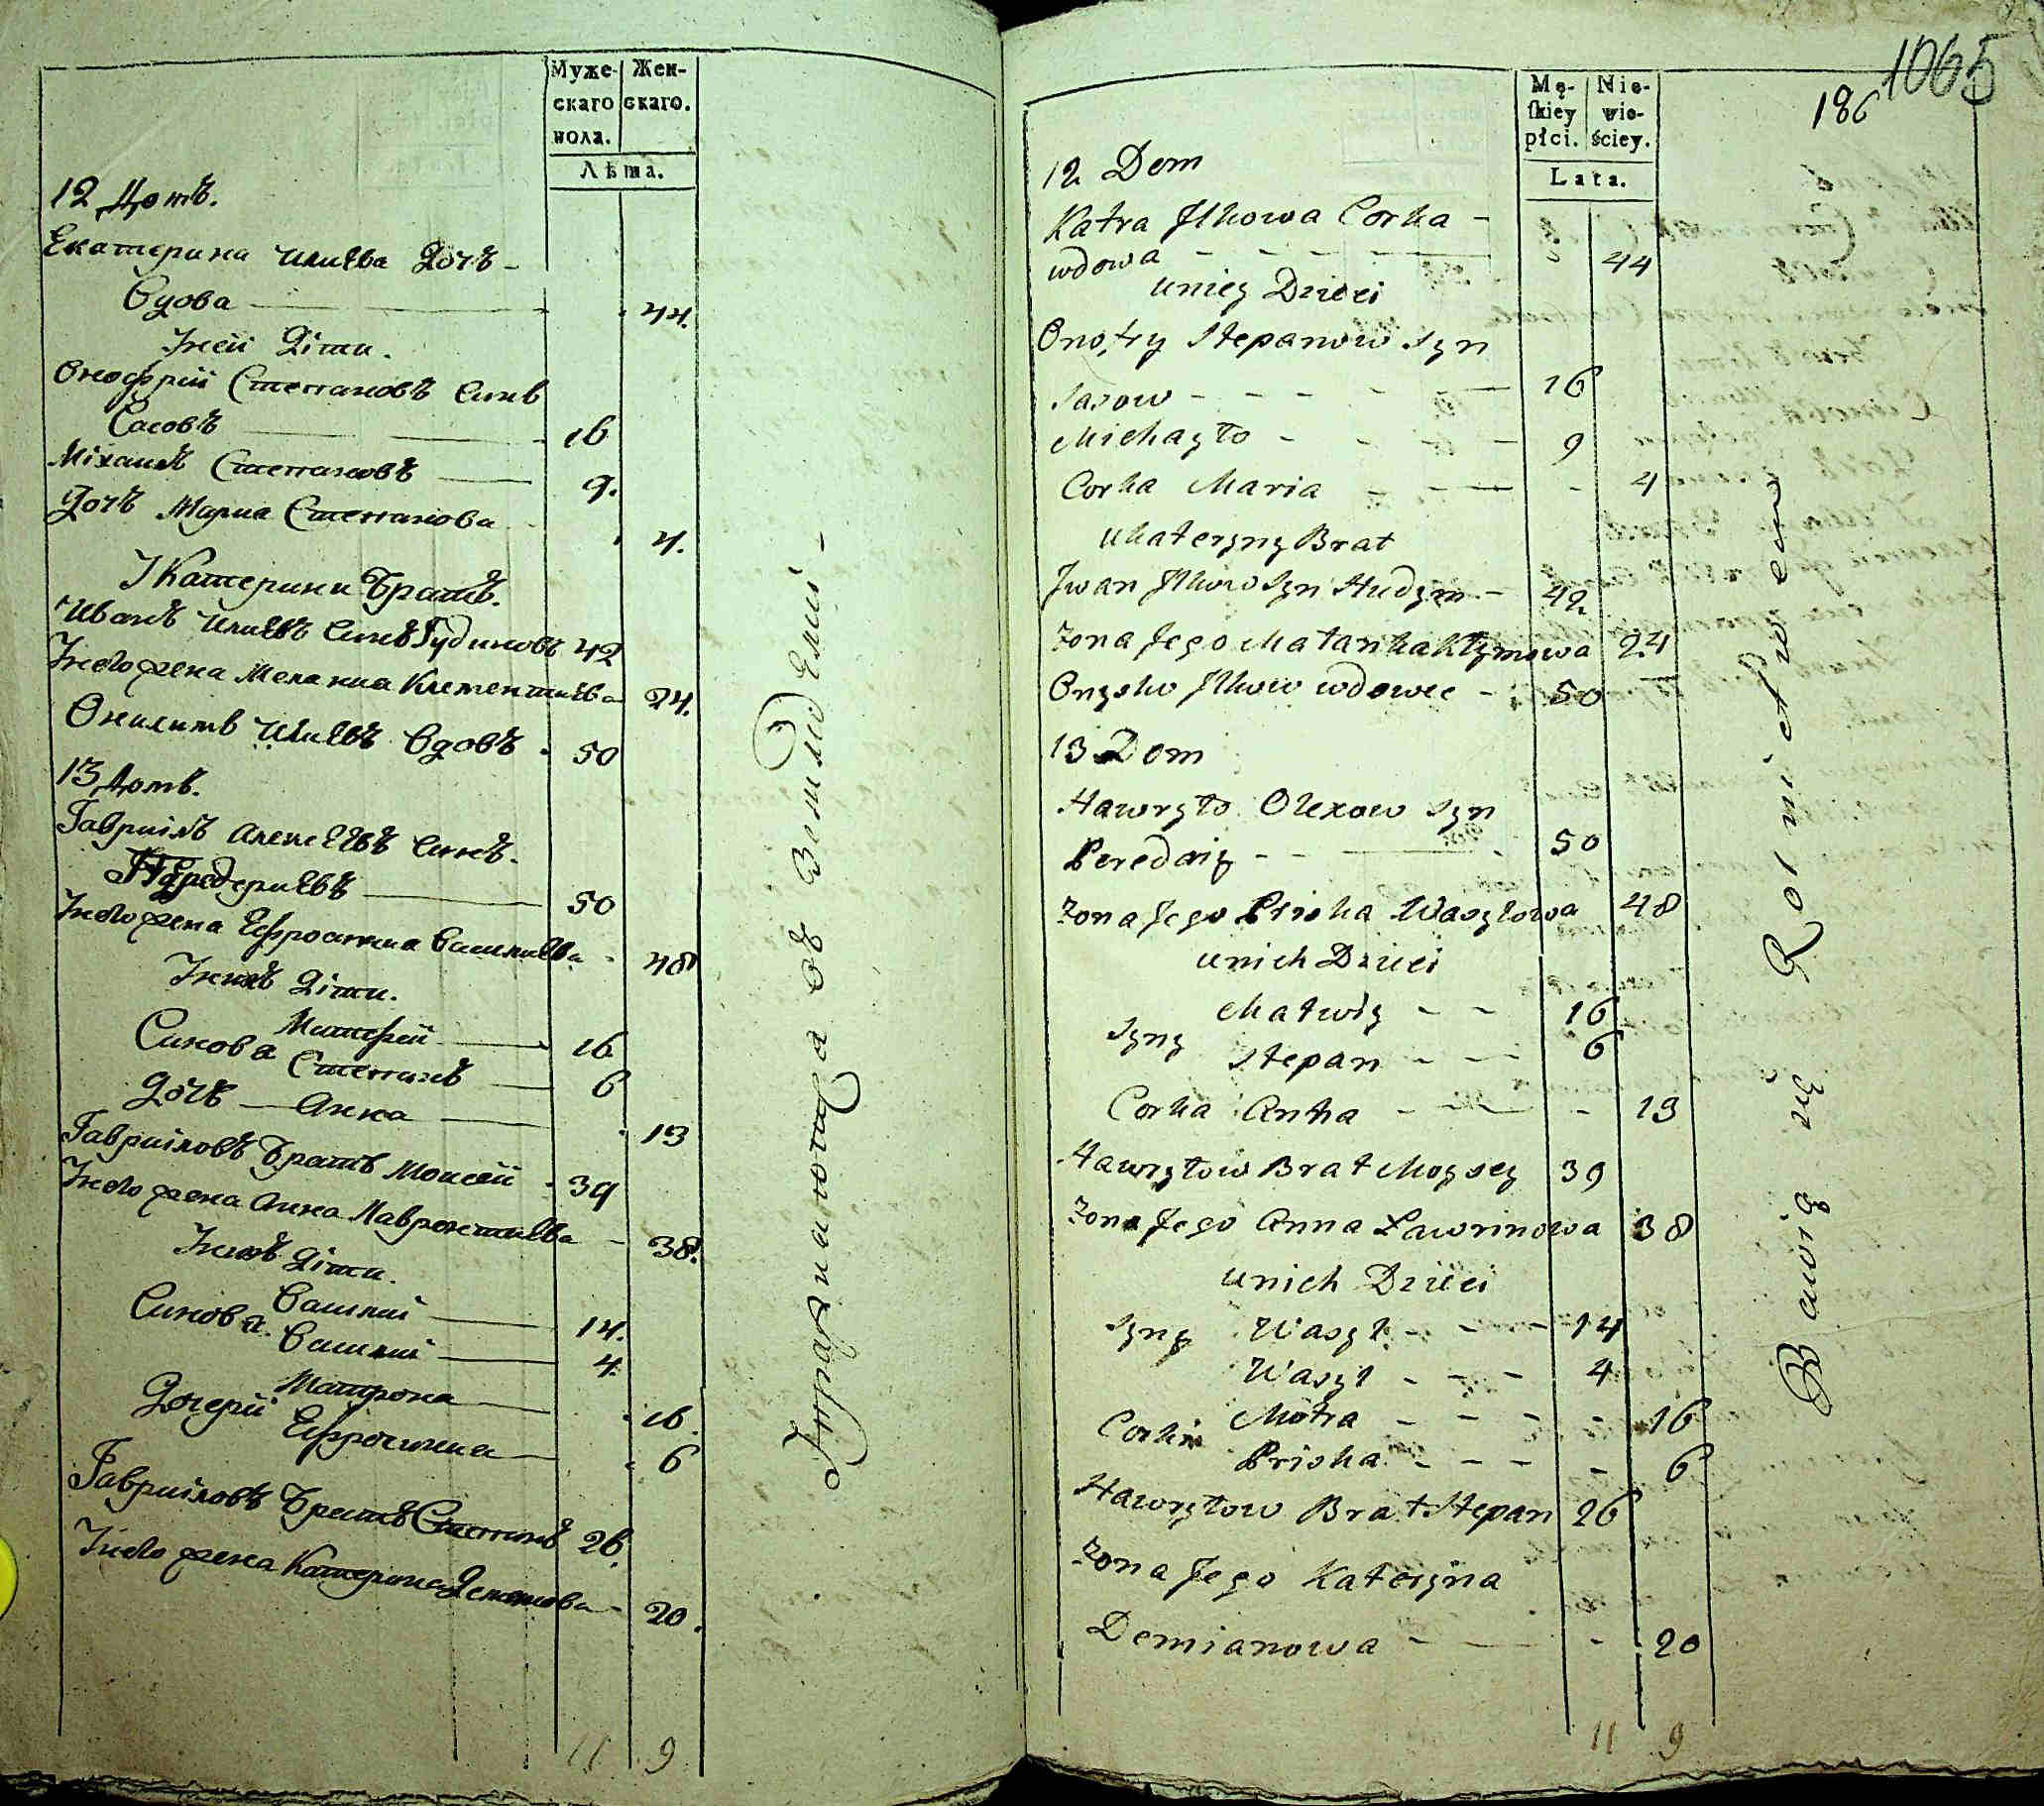 Муже-
скаго
пола.
Жен-
скаго.
Лѣта.
12 Домъ.
Екатерина Илиева Дочъ -
Вдова 44.
У ней Діти.
Онофрій Степановъ Синъ
Сасовъ 16
Міхаилъ Степановъ 9.
Дочъ Мариа Степанова 4.
У Катерини Братъ.
Иванъ Илиевъ Синъ Гудимовъ 42
У него жена Меланиа Клементиева 24.
Илиевъ Вдовъ - 50
13 Домъ.
Гавриілъ Алексѣевъ Синъ.
50
У него жена Ефросиниа Василиева - 48
У нихъ Діти.
Синова
Матфей 16
Степанъ 6
Дочъ Анна 13
Гавриіловъ Братъ Моисей 39
У него жена Анна Лаврентиева - 38.
У нихъ Діти.
Синова
Василий 14.
Василий 4.
Дочерій
Матрона 16.
Ефросиниа 6
Гавриіловъ Братъ Степанъ 26.
У него жена Катерина Демянова - 20.
11 9
Упражнаютца въ Земледелиі -
1065
186
Mę-
skiey
płci.
Nie-
wie-
ściey.
Lata.
12 Dom
Katra Ilkowa Corka -
wdowa - - - - 44
u niey Dzieci
Onofry Stepanow Syn
Sasow - - - - 16
Michayło - - - - 9
Corka Maria - - - - 4
u Kateryny Brat
Iwan Ilkow Syn Hudym - 42
Zona Jego Małanka Kłymowa 24
Onysko Ilkow wdowec - 50
13 Dom
Hawryło Olexow Syn
Perederiy - - - 50
Zona Jego Priska Wasylowa 48
u nich Dzieci
Syny
Matwiy - - 16
Stepan - - - 6
Corka Anna - - - - 13
Hawryłow Brat Moysey 39
Zona Jego Anna Ławrinowa 38
u nich Dzieci
Syny
Wasyl - - - 14
Wasyl - - - 4
Corki
Motra - - - - 16
Priska - - - - 6
Hawryłow Brat Stepan 26
Zona Jego Kateryna
Demianowa - - - 20
11 9
Bawią się Rolnictwem